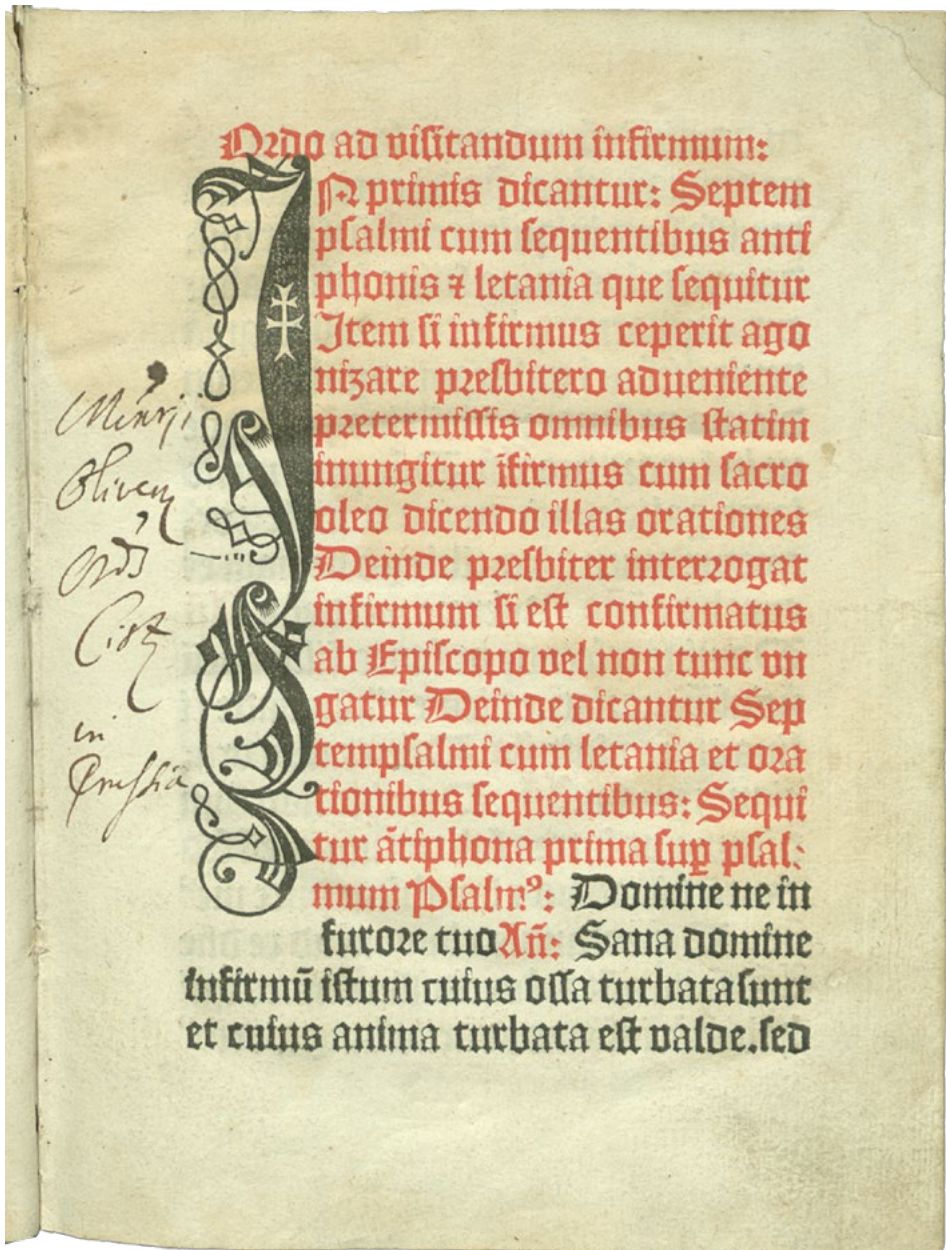 Ordo ad visitandum infirmum:
IN primis dicantur: Septem
psalmi cum sequentibus anti
phonis ⁊ letania que sequitur
Item si infirmus ceperit ago
nizare presbitero adueniente
pretermissis omnibus statim
inungitur īfirmus cum sacro
oleo dicendo illas orationes
Deinde presbiter interrogat
infirmum si est confirmatus
ab Episcopo vel non tunc vn
gatur Deinde dicantur Sep
tempsalmi cum letania et ora
tionibus sequentibus: Sequi
tur ātiphona prima suꝑ psal:
mum Psalmꝰ: Domine ne in
furore tuo Añ: Sana domine
infirmū istum cuius ossa turbata sunt
et cuius anima turbata est valde. sed
Olivens
Ordis
Cist
in
Prussia